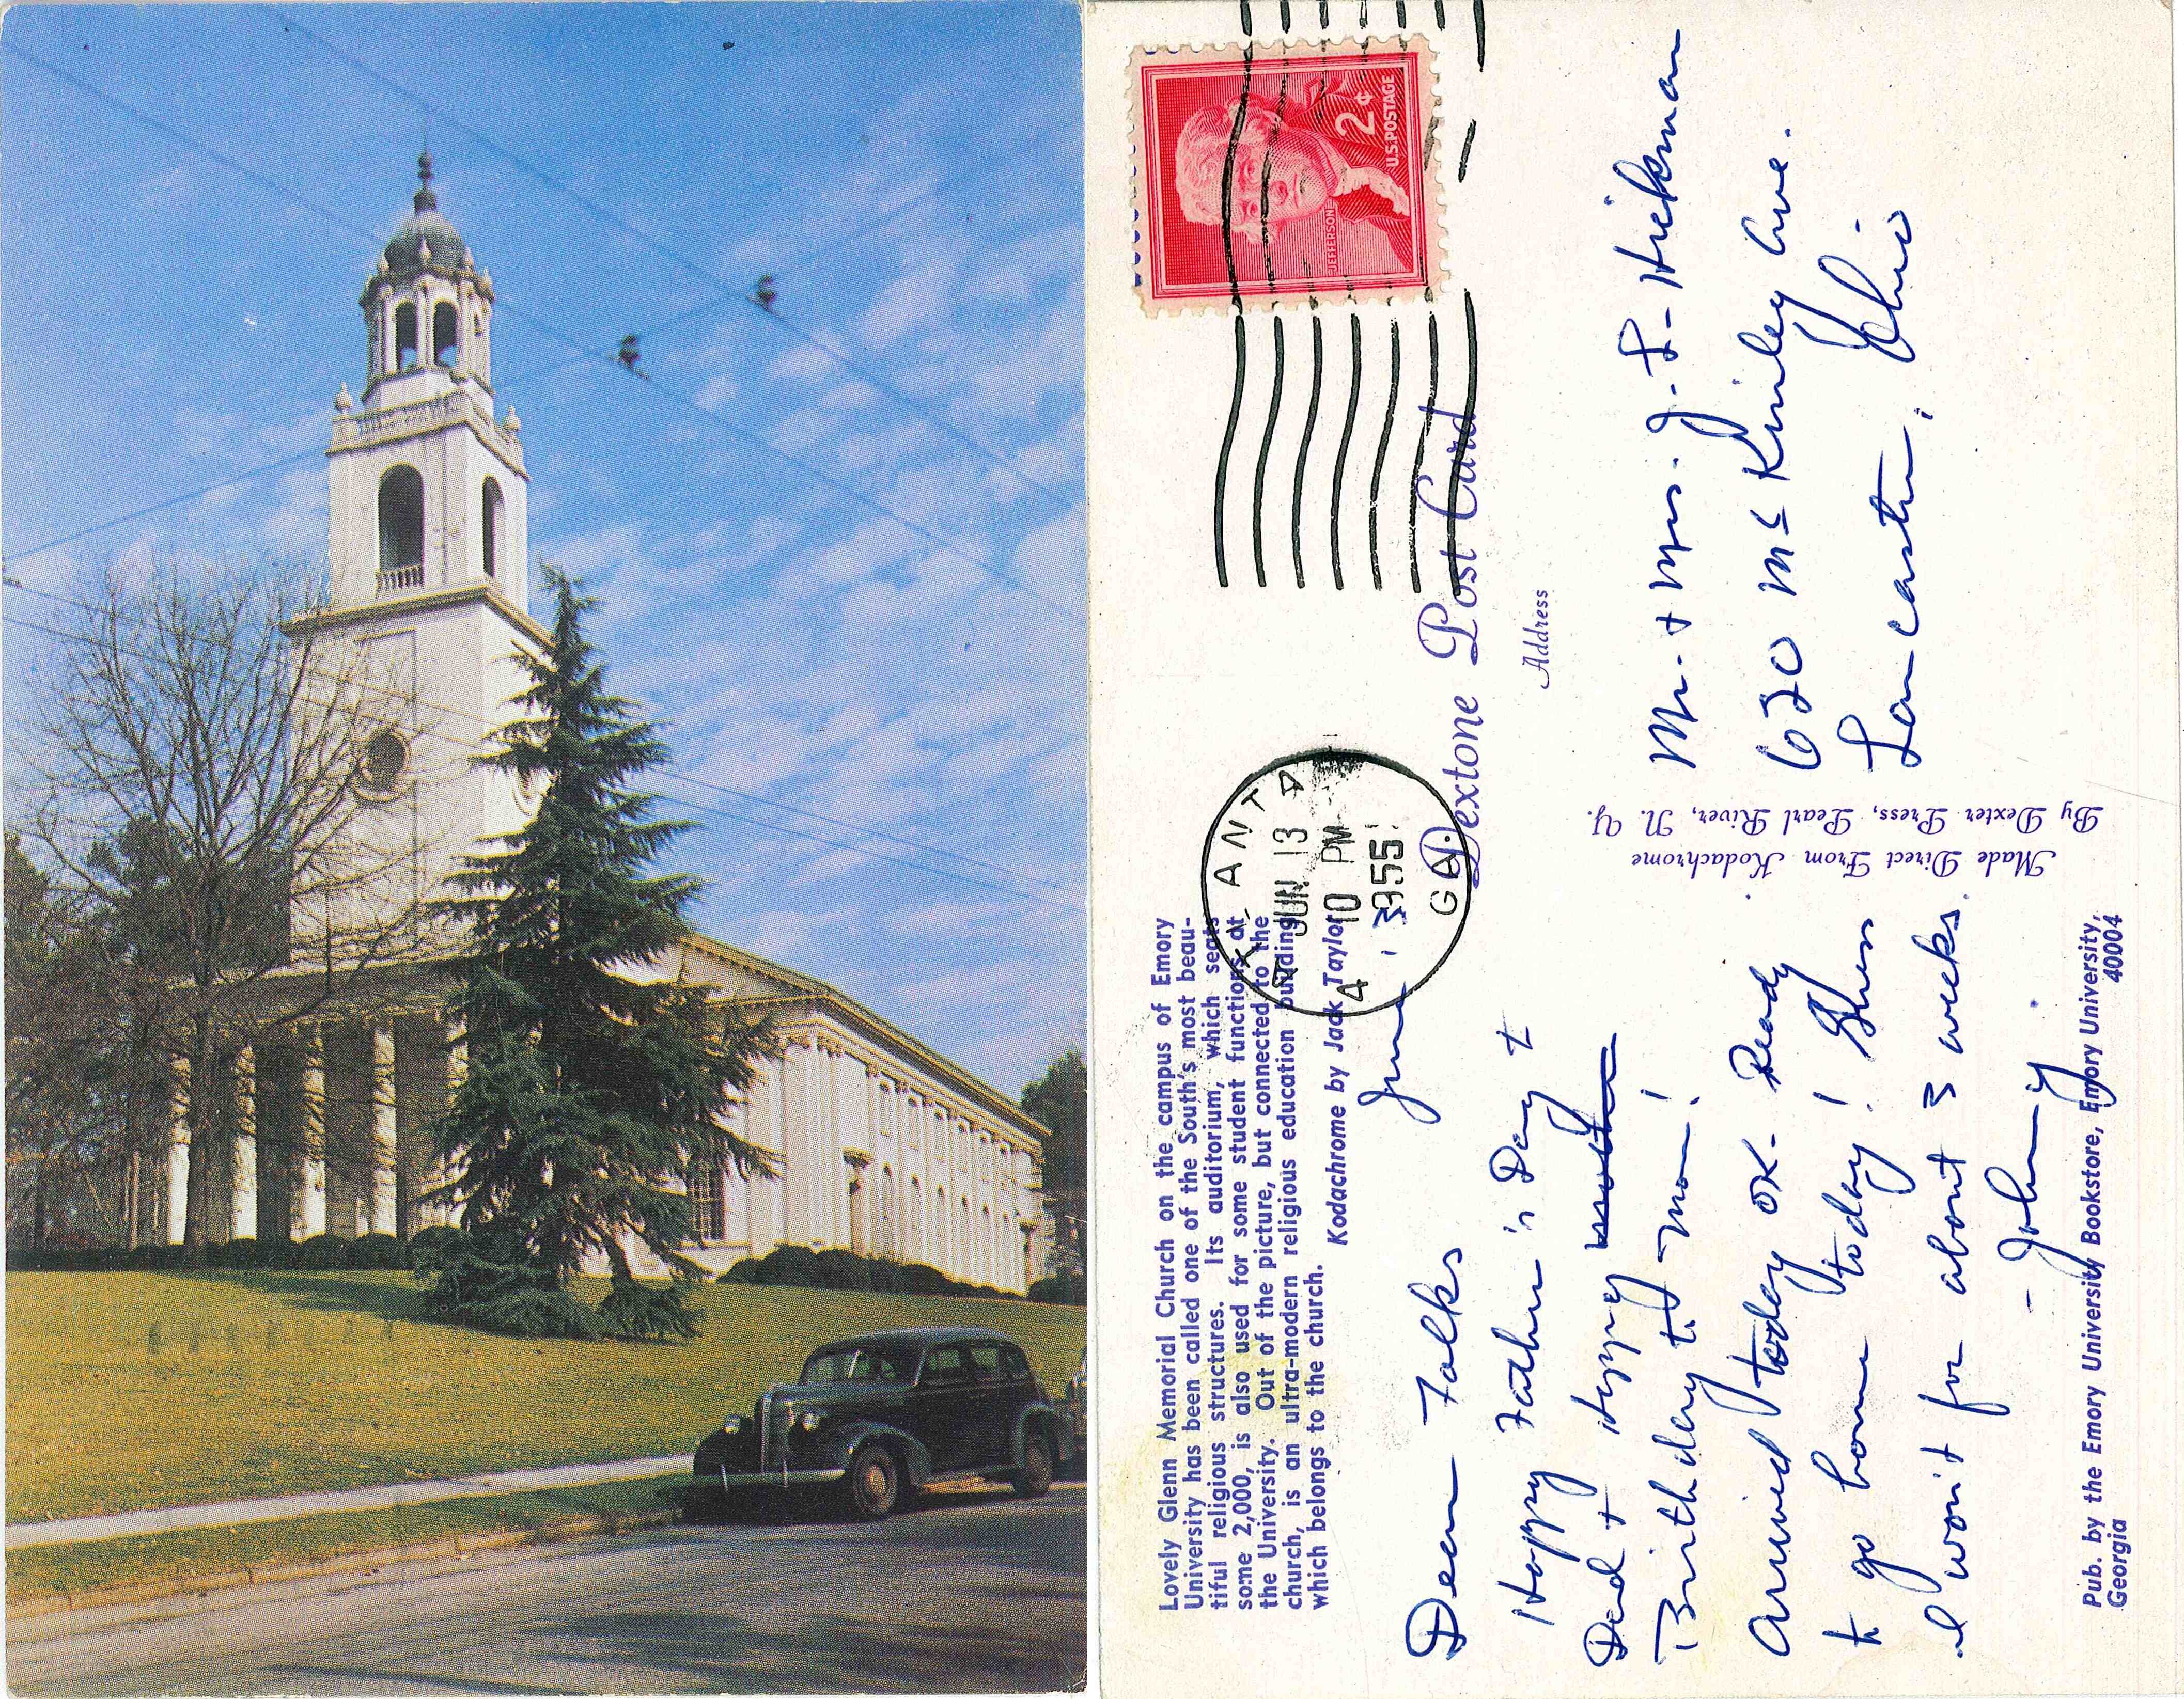 Lovely Glenn Memorial Church on the campus of Emory
University has been called one of the South's most beau-
tiful religious structures. Its auditorium, which seats
some 2,000, is also used for some student functions at
the University. Out of the picture, but connected to the
church, is an ultra-modern religious education building
which belongs to the church.
Kodachrome by Jack Taylor
June, 13
Dear Folks
Happy Father's Day to
Dad + Happy mother
Birthday to Mom!
Arrived today OK. Ready
to go home today! Guess
I won't for about 3 weeks.
- Johnny
Pub. by the Emory University Bookstore, Emory University,
Georgia 40004
Made Direct From Kodachrome
By Dexter Press, Pearl River, N. Y.
ATLANTA
JUN 13
10 PM
1955
GA.
JEFFERSON
2¢
U.S. POSTAGE
Dextone Post Card
Address
Mr. + Mrs. J. L. Hickman
620 McKinley Ave.
Lancaster, Ohio